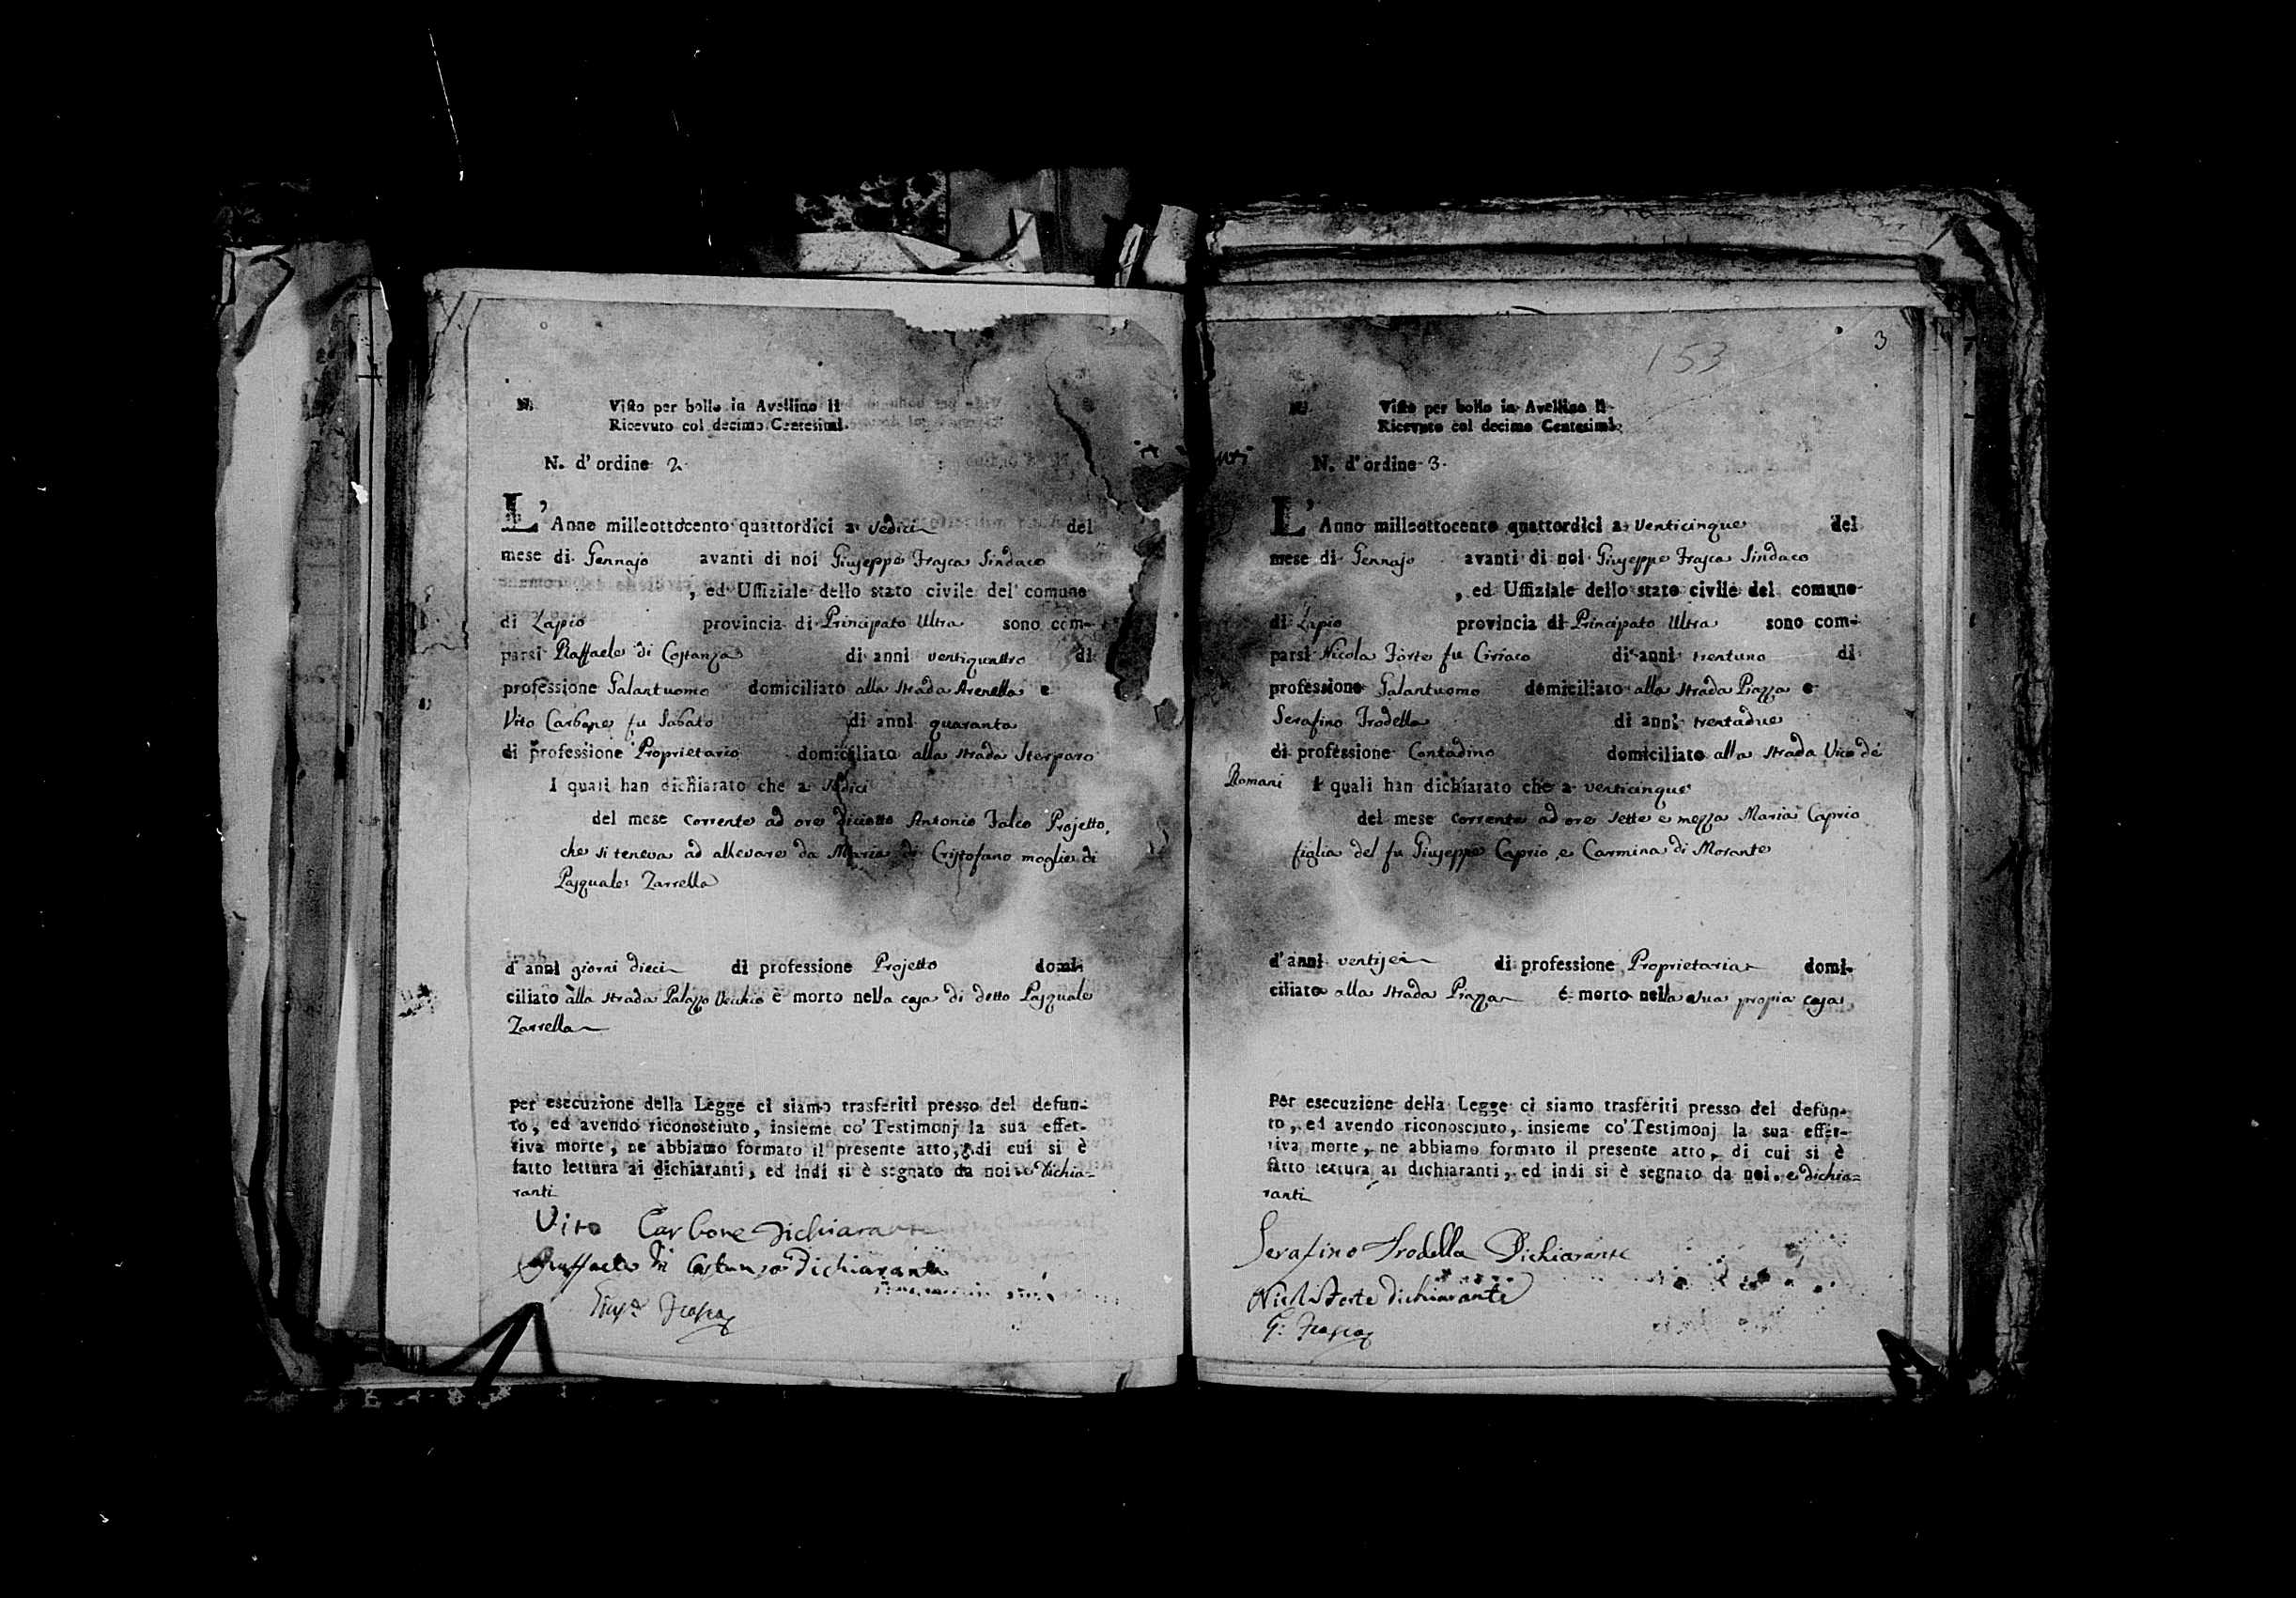 N. Visto per bollo in Avellino li
Ricevuto col decimo Centesimi.
N. d'ordine 2.
L'Anno milleottocento quattordici a sedici del
mese di Gennajo avanti di noi Giuseppe Frasca Sindaco
, ed Uffiziale dello stato civile del comune
di Lapio provincia di Principato Ultra sono com-
parsi Raffaele di Costanza di anni ventiquattro di
professione Galantuomo domiciliato alla strada Arenella e
Vito Carbone fu Sabato di anni quaranta
di professione Proprietario domiciliato alla strada Sterparo
I quali han dichiarato che a sedici
del mese corrente ad ore diciotto Antonio Falco Projetto,
che si teneva ad allevare da Maria di Cristofano moglie di
Pasquale Zarrella
d'anni giorni dieci di professione Projetto domi-
ciliato alla strada Palazzo Vecchio è morto nella casa di detto Pasquale
Zarrella
per esecuzione della Legge ci siamo trasferiti presso del defun-
to, ed avendo riconosciuto, insieme co' Testimonj la sua effet-
tiva morte, ne abbiamo formato il presente atto, di cui si è
fatto lettura ai dichiaranti, ed indi si è segnato da noi e dichia-
ranti
Vito Carbone Dichiarante
Raffaele Di Costanza Dichiarante
Giusᵉ Frasca
3
153
N. Visto per bollo in Avellino li
Ricevuto col decimo Centesimi.
N. d'ordine 3.
L'Anno milleottocento quattordici a venticinque del
mese di Gennajo avanti di noi Giuseppe Frasca Sindaco
, ed Uffiziale dello stato civile del comune
di Lapio provincia di Principato Ultra sono com-
parsi Nicola Forte fu Ciriaco di anni trentuno di
professione Galantuomo domiciliato alla strada Piazza e
Serafino Trodella di anni trentadue
di professione Contadino domiciliato alla strada Vico de'
Romani I quali han dichiarato che a venticinque
del mese corrente ad ore sette e mezza Maria Caprio
figlia del fu Giuseppe Caprio e Carmina di Morante
d'anni ventisei di professione Proprietaria domi-
ciliato alla strada Piazza è morto nella sua propia casa
Per esecuzione della Legge ci siamo trasferiti presso del defun-
to, ed avendo riconosciuto, insieme co' Testimonj la sua effet-
tiva morte, ne abbiamo formato il presente atto, di cui si è
fatto lettura ai dichiaranti, ed indi si è segnato da noi, e dichia=
ranti
Serafino Trodella Dichiarante
Nicola Forte dichiarante
G: Frasca